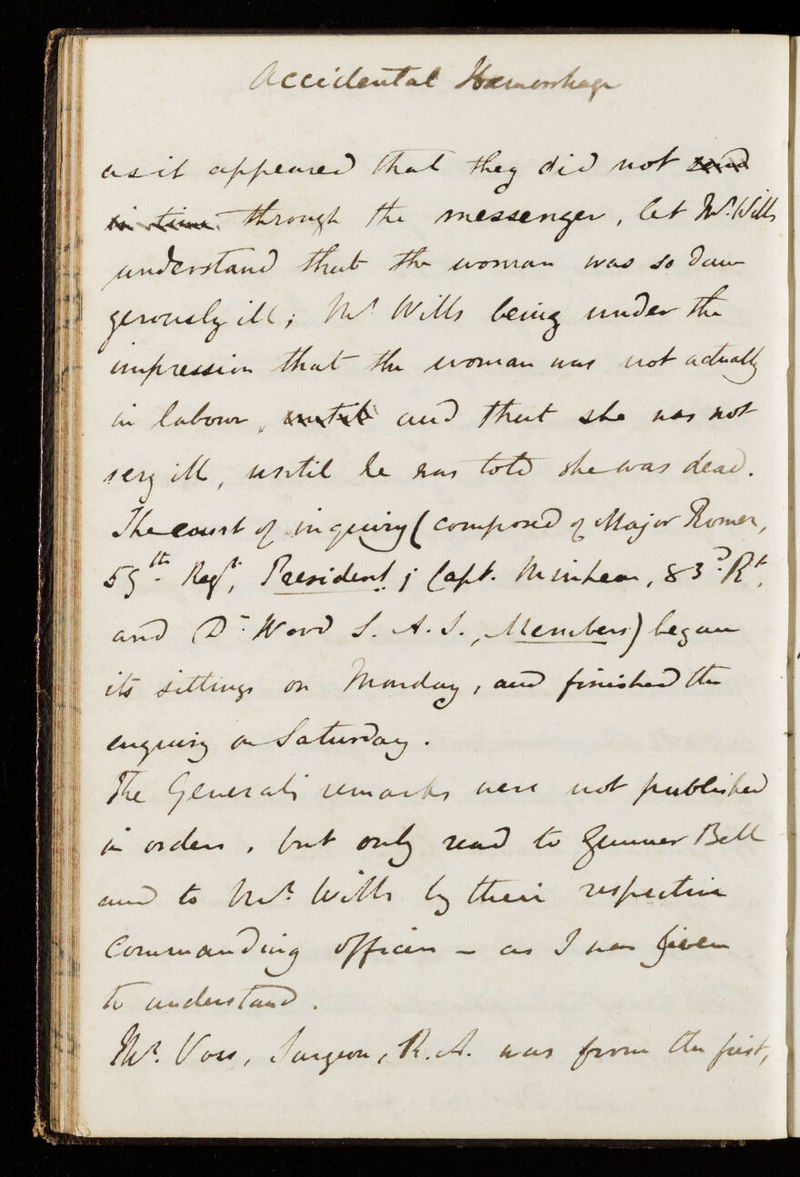 Accidental Hæmorrhage
as it appeared that they did not send
in time through the messenger, let Mr. Wills
understand that the woman was so dan
gerously ill; Mr Wills being under the
impression that the woman was not actually
in labour, until and that she was not
very ill, until he was told she was dead.
The court of inquiry (composed of Major Romer,
59th. Regt, President; Capt. 83d. Rt.
and Dr. Word S. A. S., Members) began
its sittings on Monday, and finished the
enquiry on Saturday.
The Generals remarks were not published
in orders, but only read to Gunner Bell
and to Mr. Wills by their respective
Commanding officers – as I was given
to understand.
Mr. Voss, Surgeon, R.A. was from the first,